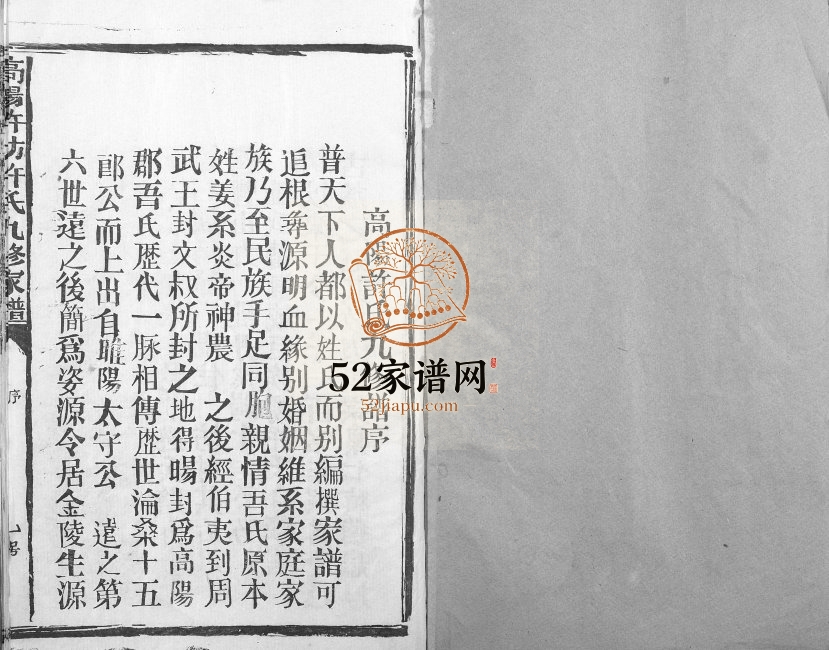 高陽許氏九修譜序
普天下人都以姓氏而别編撰家譜可
追根尋源明血緣别婚姻維系家庭家
族乃至民族手足同胞親情吾氏原本
姓姜系炎帝神農 之後經伯夷到周
武王封文叔所封之地得暘封爲高陽
郡吾氏歴代一脉相傳歴世淪桑十五
郎公而上出自睢陽太守公 遠之第
六世遠之後簡爲婺源令居金陵生源
高陽許坊許氏九修家譜
序
52家谱网
52jiapu.com